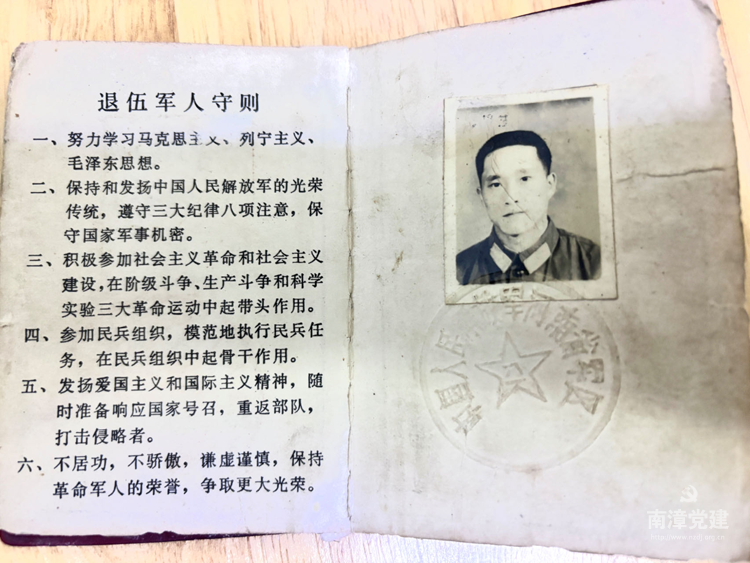 退伍军人守则
一、努力学习马克思主义、列宁主义、
毛泽东思想。
二、保持和发扬中国人民解放军的光荣
传统，遵守三大纪律八项注意，保
守国家军事机密。
三、积极参加社会主义革命和社会主义
建设，在阶级斗争、生产斗争和科学
实验三大革命运动中起带头作用。
四、参加民兵组织，模范地执行民兵任
务，在民兵组织中起骨干作用。
五、发扬爱国主义和国际主义精神，随
时准备响应国家号召，重返部队，
打击侵略者。
六、不居功，不骄傲，谦虚谨慎，保持
革命军人的荣誉，争取更大光荣。
中国人民解放军河南省军区
八一
南漳党建